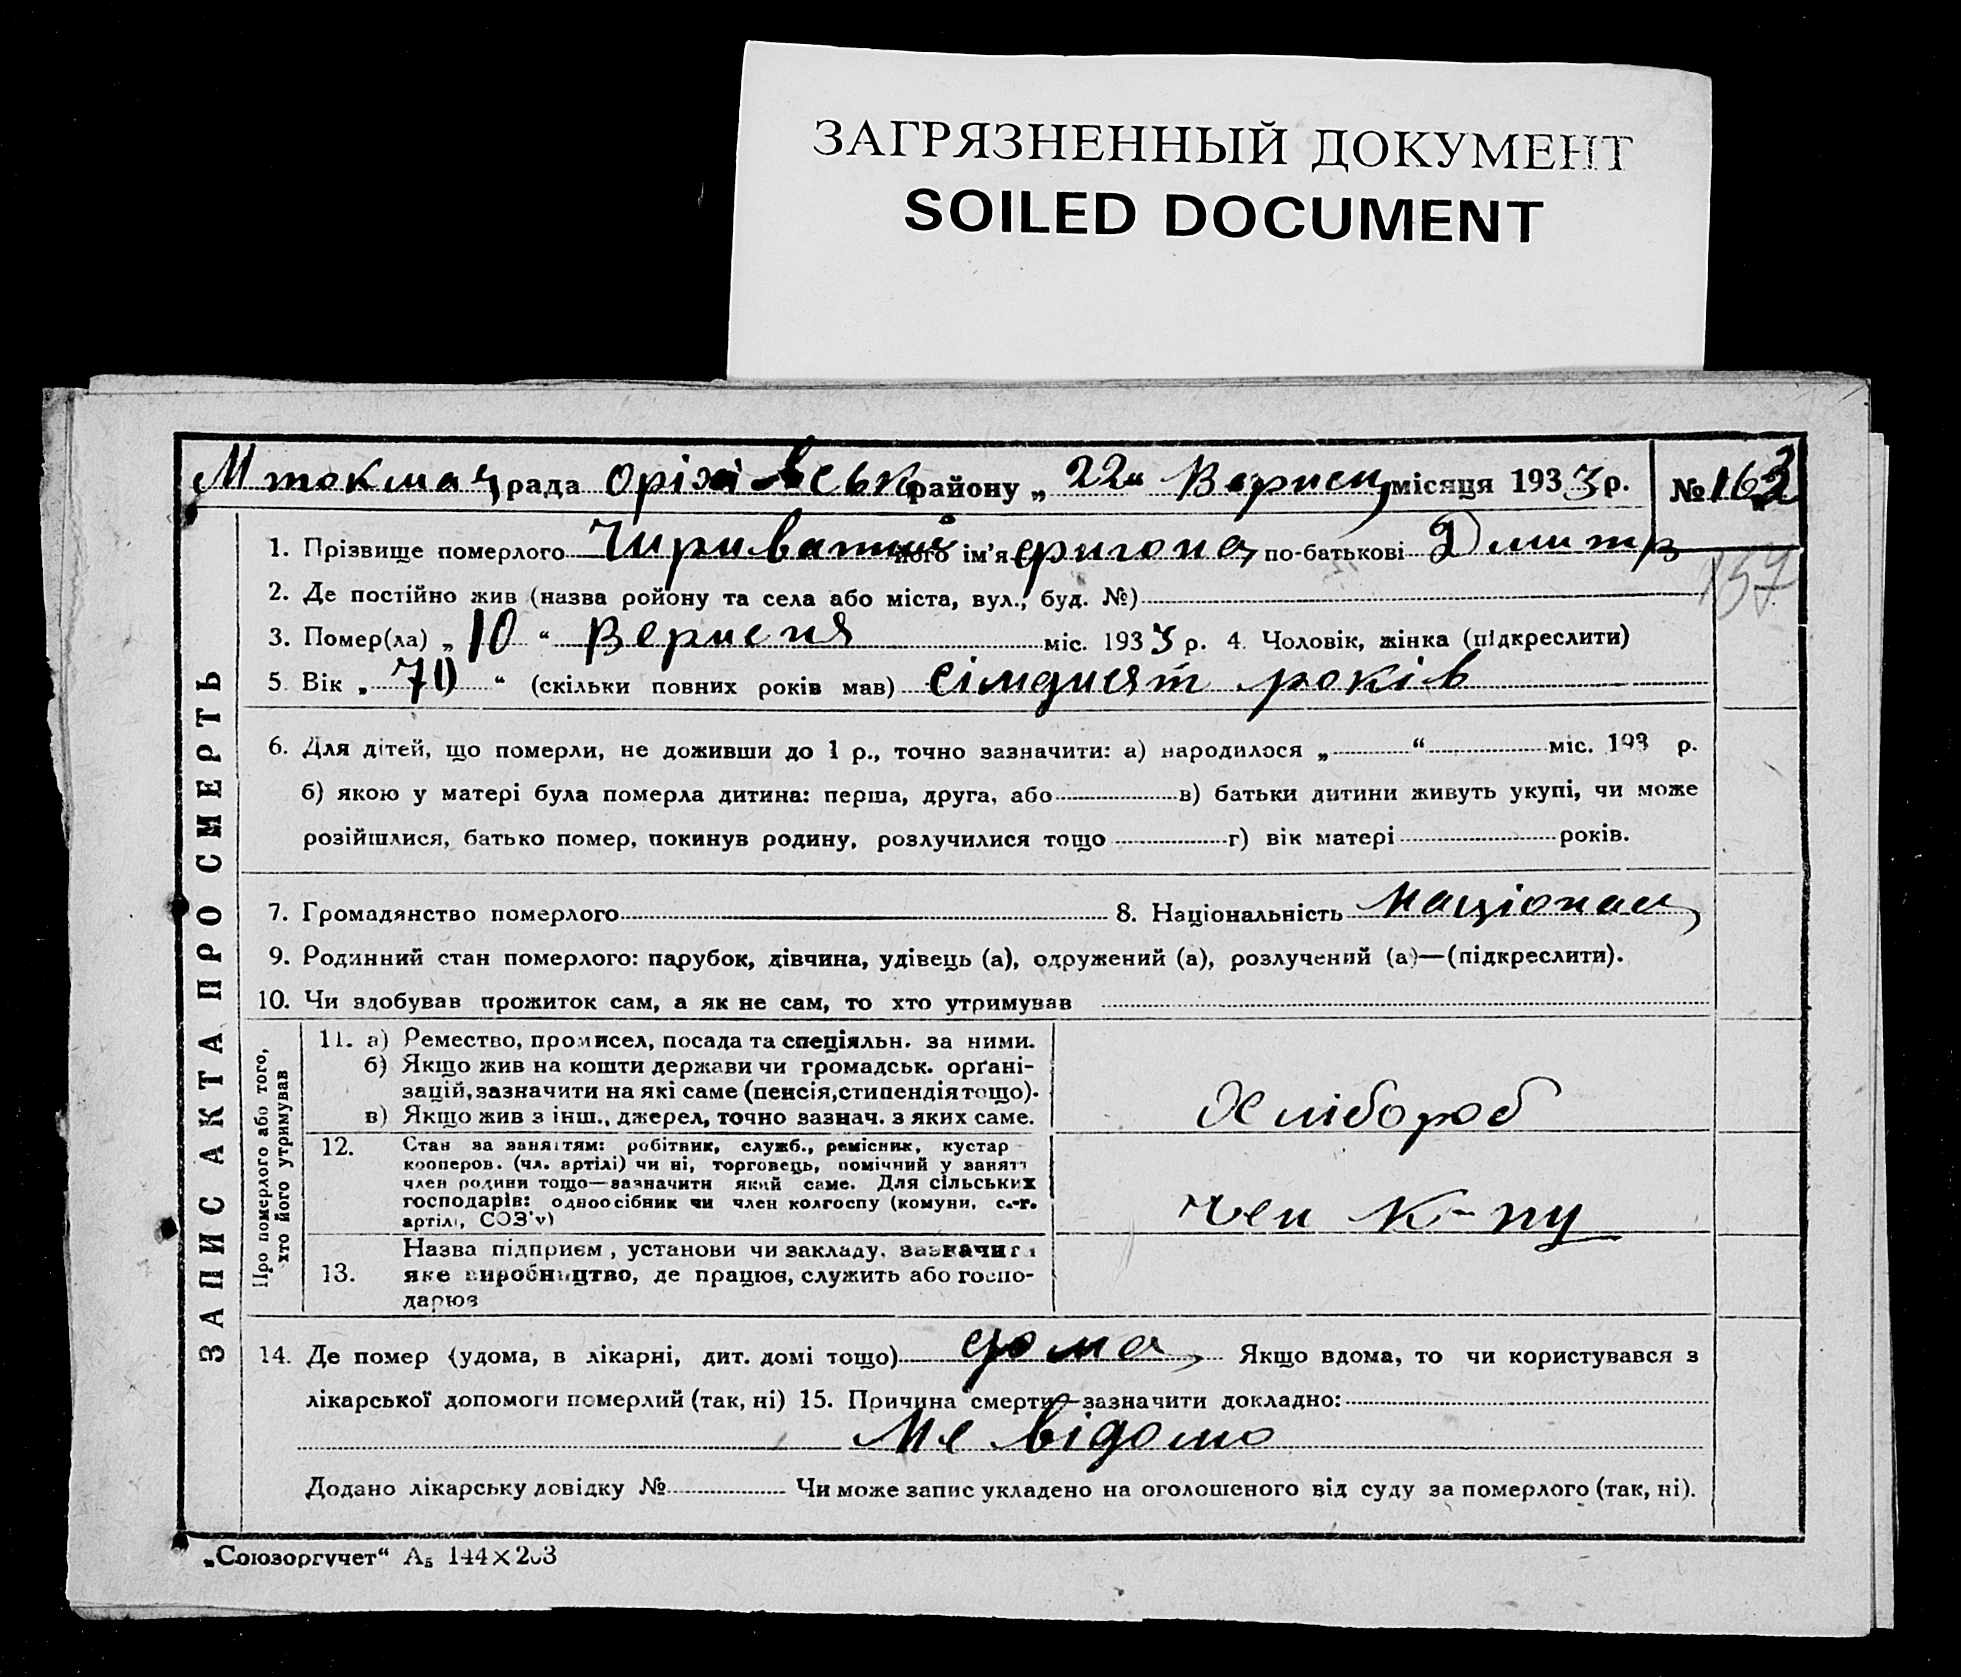 ЗАГРЯЗНЕННЫЙ ДОКУМЕНТ
SOILED DOCUMENT
М токмач рада Оріхівськ району „ 22 “ Вересн місяця 1933 р. № 163
1. Прізвище померлого його ім’я по-батькові Дмитр
157
2. Де постійно жив (назва ройону та села або міста, вул., буд. №)
3. Помер(ла) „ 10 “ Вересня міс. 1933 р. 4. Чоловік, жінка (підкреслити)
5. Вік „ 70 “ (скільки повних років мав) сімдисят років
6. Для дітей, що померли, не доживши до 1 р., точно зазначити: а) народилося „ “ міс. 193 р.
б) якою у матері була померла дитина: перша, друга, або в) батьки дитини живуть укупі, чи може
розійшлися, батько помер, покинув родину, розлучилися тощо г) вік матері років.
7. Громадянство померлого 8. Національність
9. Родинний стан померлого: парубок, дівчина, удівець (а), одружений (а), розлучений (а)—(підкреслити).
10. Чи здобував прожиток сам, а як не сам, то хто утримував
ЗАПИС АКТА ПРО СМЕРТЬ
Про померлого або того,
хто його утримував
11. а) Ремество, промисел, посада та спеціяльн. за ними.
б) Якщо жив на кошти держави чи громадськ. орґані-
зацій, зазначити на які саме (пенсія, стипендія тощо).
в) Якщо жив з інш., джерел, точно зазнач. з яких саме.
Хлібороб
12. Стан за заняттям: робітник, служб., ремісник, кустар
кооперов. (чл. артілі) чи ні, торговець, помічний у занятт
член родини тощо—зазначити який саме. Для сільських
господарів: одноосібник чи член колгоспу (комуни, с.-г.
артілі, СОЗ’у)
член к-пу
13. Назва підприєм, установи чи закладу, зазначити
яке виробництво, де працює, служить або госпо-
дарює
14. Де помер (удома, в лікарні, дит. домі тощо) дома Якщо вдома, то чи користувався з
лікарської допомоги померлий (так, ні) 15. Причина смерти—зазначити докладно:
Не відомо
Додано лікарську довідку № Чи може запис укладено на оголошеного від суду за померлого (так, ні).
„Союзоргучет“ А5 144×203